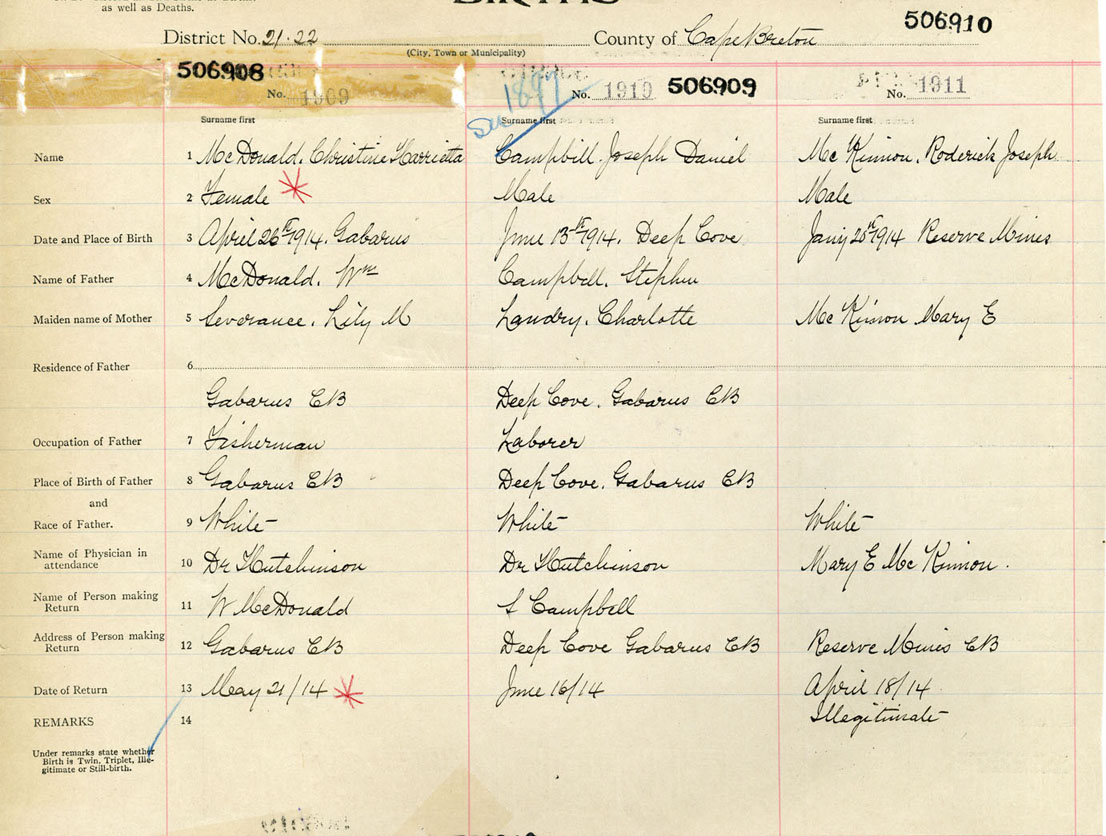 as well as Deaths.
BIRTHS
District No. 21-22 County of Cape Breton 506910
(City, Town or Municipality)
506908
No. 1909 No. 1910 506909 No. 1911
See 1897
Surname first Surname first Surname first
Name 1 McDonald, Christine Harrietta Campbill. Joseph Daniel Mc Kinnon, Roderick Joseph
Sex 2 Female Male Male
Date and Place of Birth 3 April 26th 1914. Gabarus June 13th 1914. Deep Cove Jany 20th 1914 Reserve Mines
Name of Father 4 McDonald. Wm Campbell. Stephen
Maiden name of Mother 5 Severance. Lily M Landry. Charlotte Mc Kinnon Mary E
Residence of Father 6
Gabarus CB Deep Cove. Gabarus CB
Occupation of Father 7 Fisherman Laborer
Place of Birth of Father 8 Gabarus CB Deep Cove. Gabarus CB
and
Race of Father. 9 White White White
Name of Physician in
attendance 10 Dr Hutchinson Dr Hutchinson Mary E Mc Kinnon.
Name of Person making
Return 11 W McDonald S Campbell
Address of Person making
Return 12 Gabarus CB Deep Cove Gabarus CB Reserve Mines CB
Date of Return 13 May 21/14 June 16/14 April 18/14
REMARKS 14 Illegitimate
Under remarks state whether
Birth is Twin, Triplet, Ille-
gitimate or Still-birth.